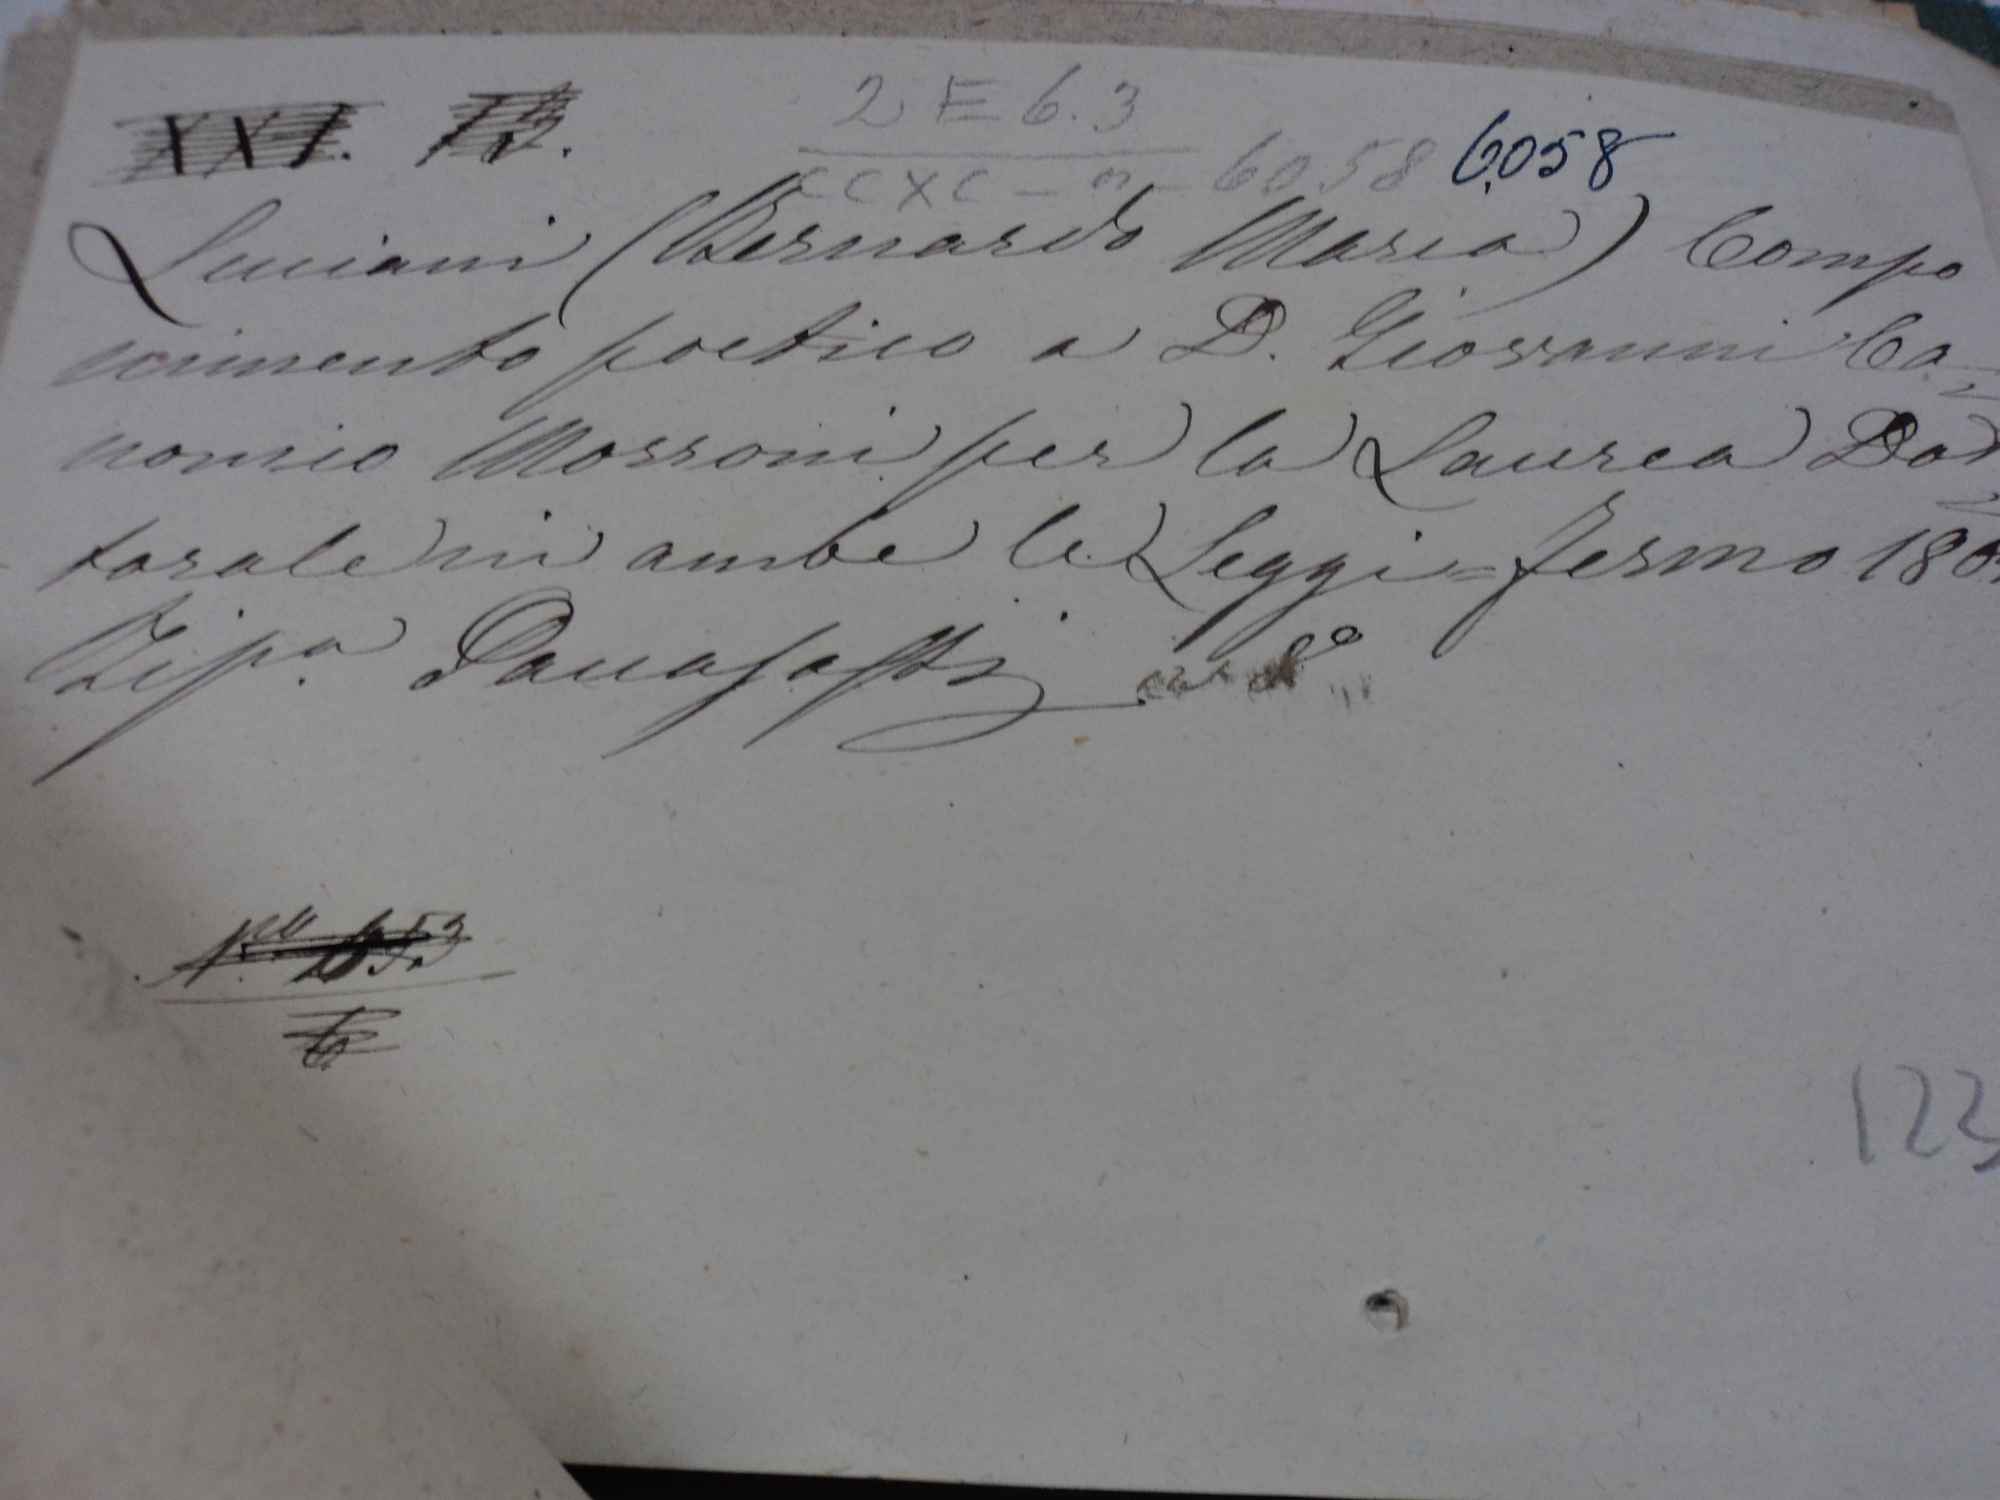 XXI.
2 E 6.3
CCXC - n - 6058 6058
Luciani (Bernardo Maria) Compo
nimento poetico a D. Giovanni Ca=
nonico Morroni per la Laurea Dot
torale in ambe le Leggi = Fermo 180
Tip.a Paccasassi in 8°
123